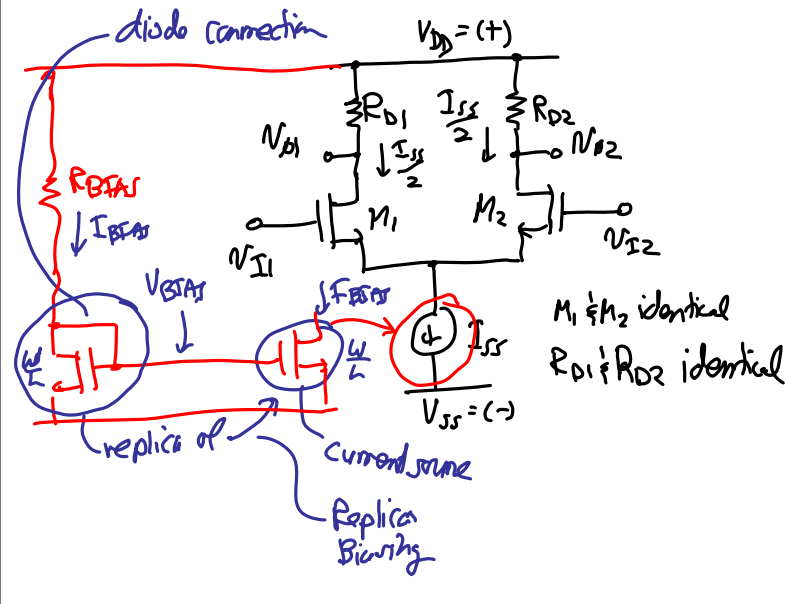 diode connection
V_DD = (+)
R_D1
I_SS/2
R_D2
V_O1
I_SS/2
V_O2
R_BIAS
I_BIAS
M_1
M_2
V_I1
V_I2
V_BIAS
I_BIAS
W/L
W/L
I_SS
M_1 & M_2 identical
R_D1 & R_D2 identical
V_SS = (-)
replica of
current source
Replica
Biasing